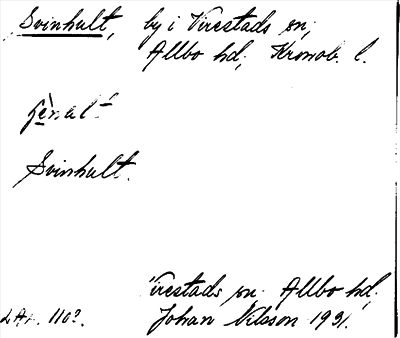 Svinhult, by i Virestads sn,
Allbo hd, Kronob. l.
Svinhult.
Virestads sn. Allbo hd,
Johan Nilsson 1931.